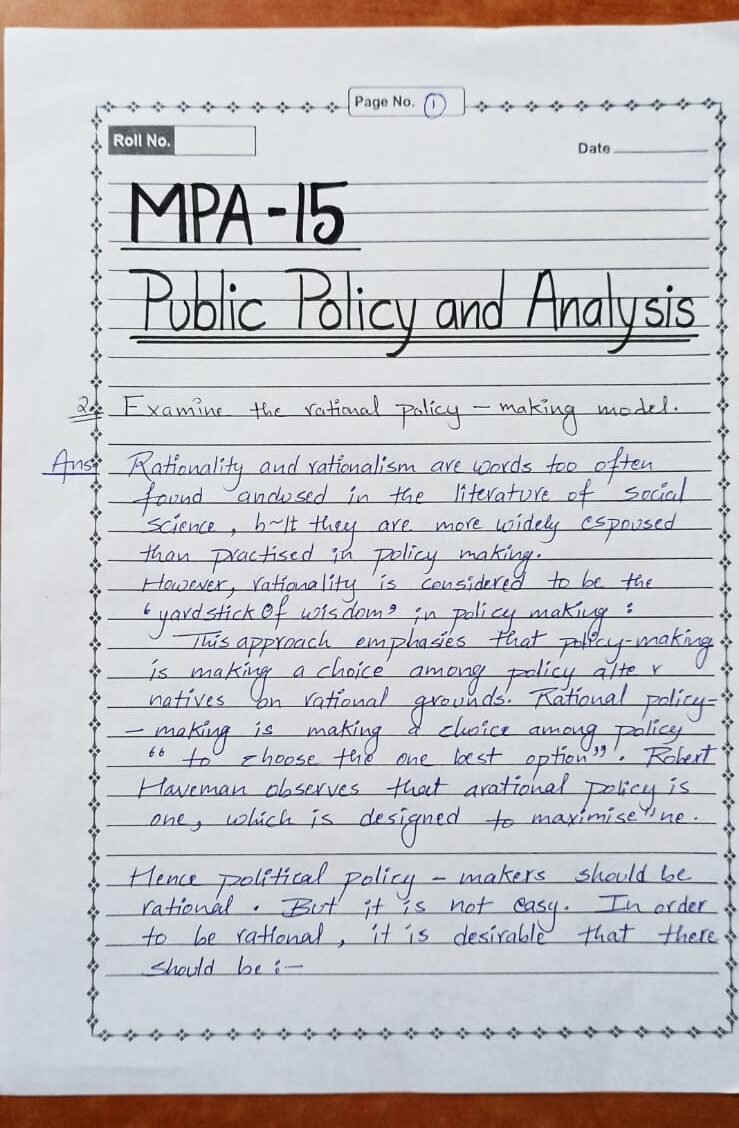 Page No. 1
Roll No.
Date
MPA-15
Public Policy and Analysis
2. Examine the rational policy - making model.
Ans Rationality and rationalism are words too often
found andused in the literature of social
science, b~lt they are more widely espoused
than practised in policy making.
However, rationality is considered to be the
"yardstick Of wisdom" in policy making :
This approach emphasies that policy-making
is making a choice among policy alte r
natives on rational grounds. Rational policy-
- making is making a choice among policy
"to choose the one best option". Robert
Haveman observes that arational policy is
one, which is designed to maximise "ne.
Hence political policy - makers should be
rational. But it is not easy. In order
to be rational, it is desirable that there
should be :-